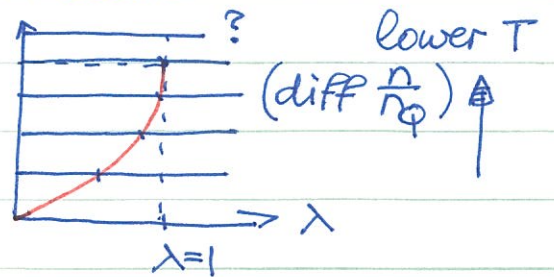 ?
lower T
(diff n/n_Q)
λ
λ=1